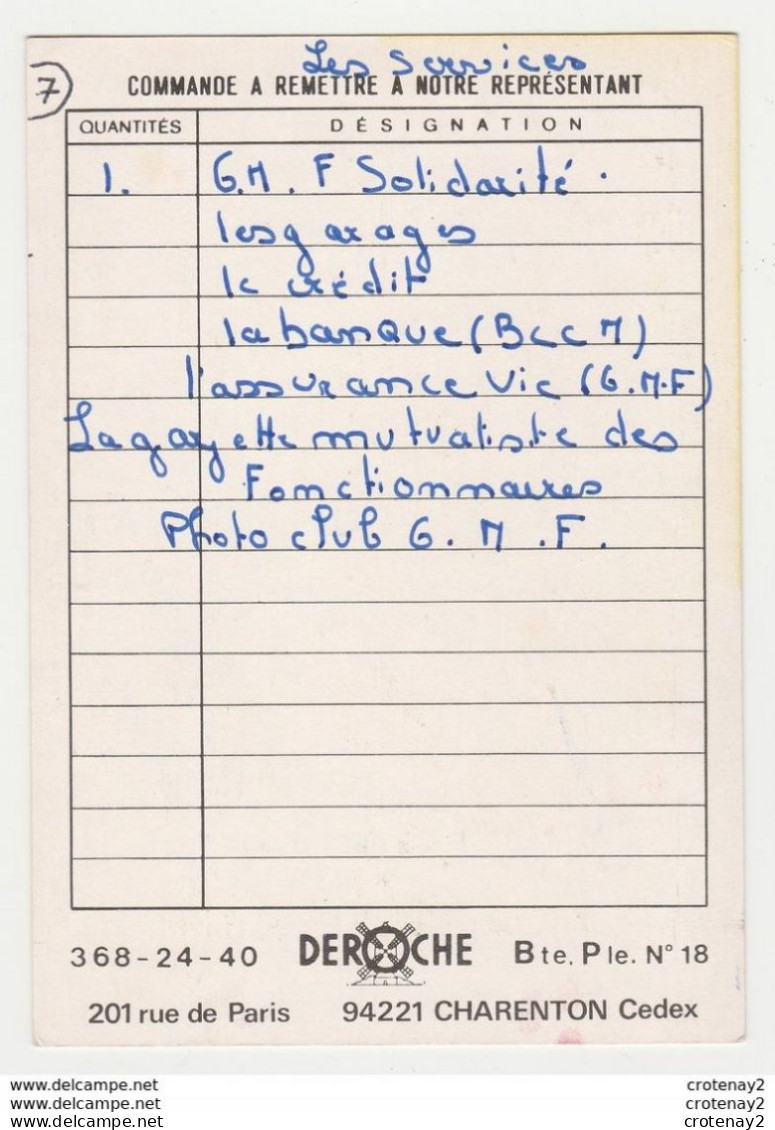 Les Services
7
COMMANDE A REMETTRE A NOTRE REPRÉSENTANT
QUANTITÉS DÉSIGNATION
1. G.M.F Solidarité.
les garages
le crédit
la banque (BCCM)
l'assurance Vie (G.M.F)
La gazette mutualiste des
Fonctionnaires
Photo club G.M.F.
368-24-40 DEROCHE Bte. Ple. N° 18
201 rue de Paris 94221 CHARENTON Cedex
www.delcampe.net crotenay2
www.delcampe.net crotenay2
www.delcampe.net crotenay2